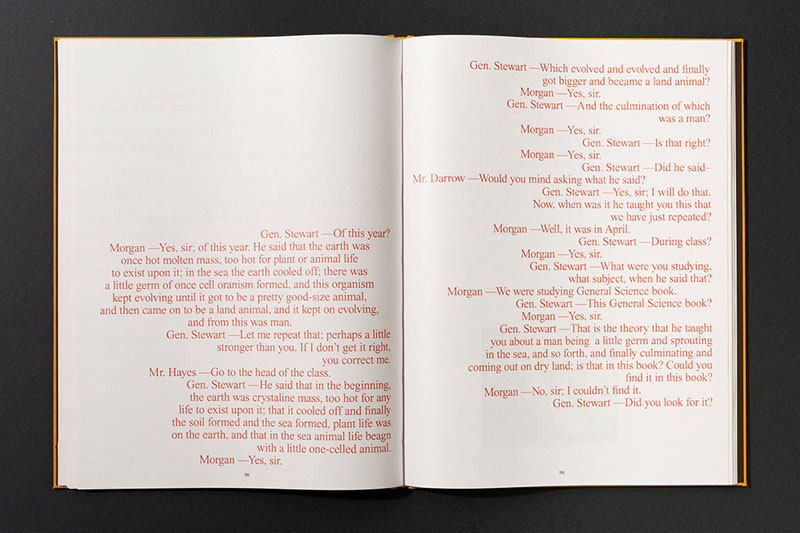 Gen. Stewart —Of this year?
Morgan —Yes, sir; of this year. He said that the earth was
once hot molten mass, too hot for plant or animal life
to exist upon it; in the sea the earth cooled off; there was
a little germ of once cell oranism formed, and this organism
kept evolving until it got to be a pretty good-size animal,
and then came on to be a land animal, and it kept on evolving,
and from this was man.
Gen. Stewart —Let me repeat that; perhaps a little
stronger than you. If I don't get it right,
you correct me.
Mr. Hayes —Go to the head of the class.
Gen. Stewart —He said that in the beginning,
the earth was crystaline mass, too hot for any
life to exist upon it; that it cooled off and finally
the soil formed and the sea formed, plant life was
on the earth, and that in the sea animal life beagn
with a little one-celled animal.
Morgan —Yes, sir.
98
Gen. Stewart —Which evolved and evolved and finally
got bigger and became a land animal?
Morgan —Yes, sir.
Gen. Stewart —And the culmination of which
was a man?
Morgan —Yes, sir.
Gen. Stewart —Is that right?
Morgan —Yes, sir.
Gen. Stewart —Did he said–
Mr. Darrow —Would you mind asking what he said?
Gen. Stewart —Yes, sir; I will do that.
Now, when was it he taught you this that
we have just repeated?
Morgan —Well, it was in April.
Gen. Stewart —During class?
Morgan —Yes, sir.
Gen. Stewart —What were you studying,
what subject, when he said that?
Morgan —We were studying General Science book.
Gen. Stewart —This General Science book?
Morgan —Yes, sir.
Gen. Stewart —That is the theory that he taught
you about a man being a little germ and sprouting
in the sea, and so forth, and finally culminating and
coming out on dry land; is that in this book? Could you
find it in this book?
Morgan —No, sir; I couldn't find it.
Gen. Stewart —Did you look for it?
99